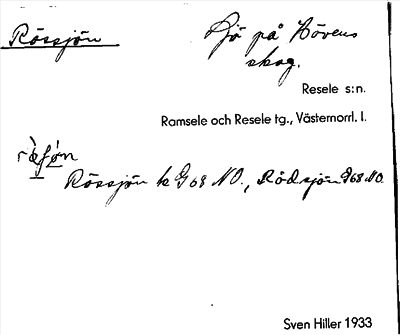 Rössjön
Sjö på Hövens
skog.
Resele s:n.
Ramsele och Resele tg., Västernorrl. l.
Rössjön k G 68 NO., Rödsjön G 68 NO.
Sven Hiller 1933